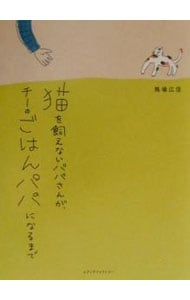 馬場広信
猫を飼えないパパさんが、
チーのごはんパパになるまで
メディアファクトリー